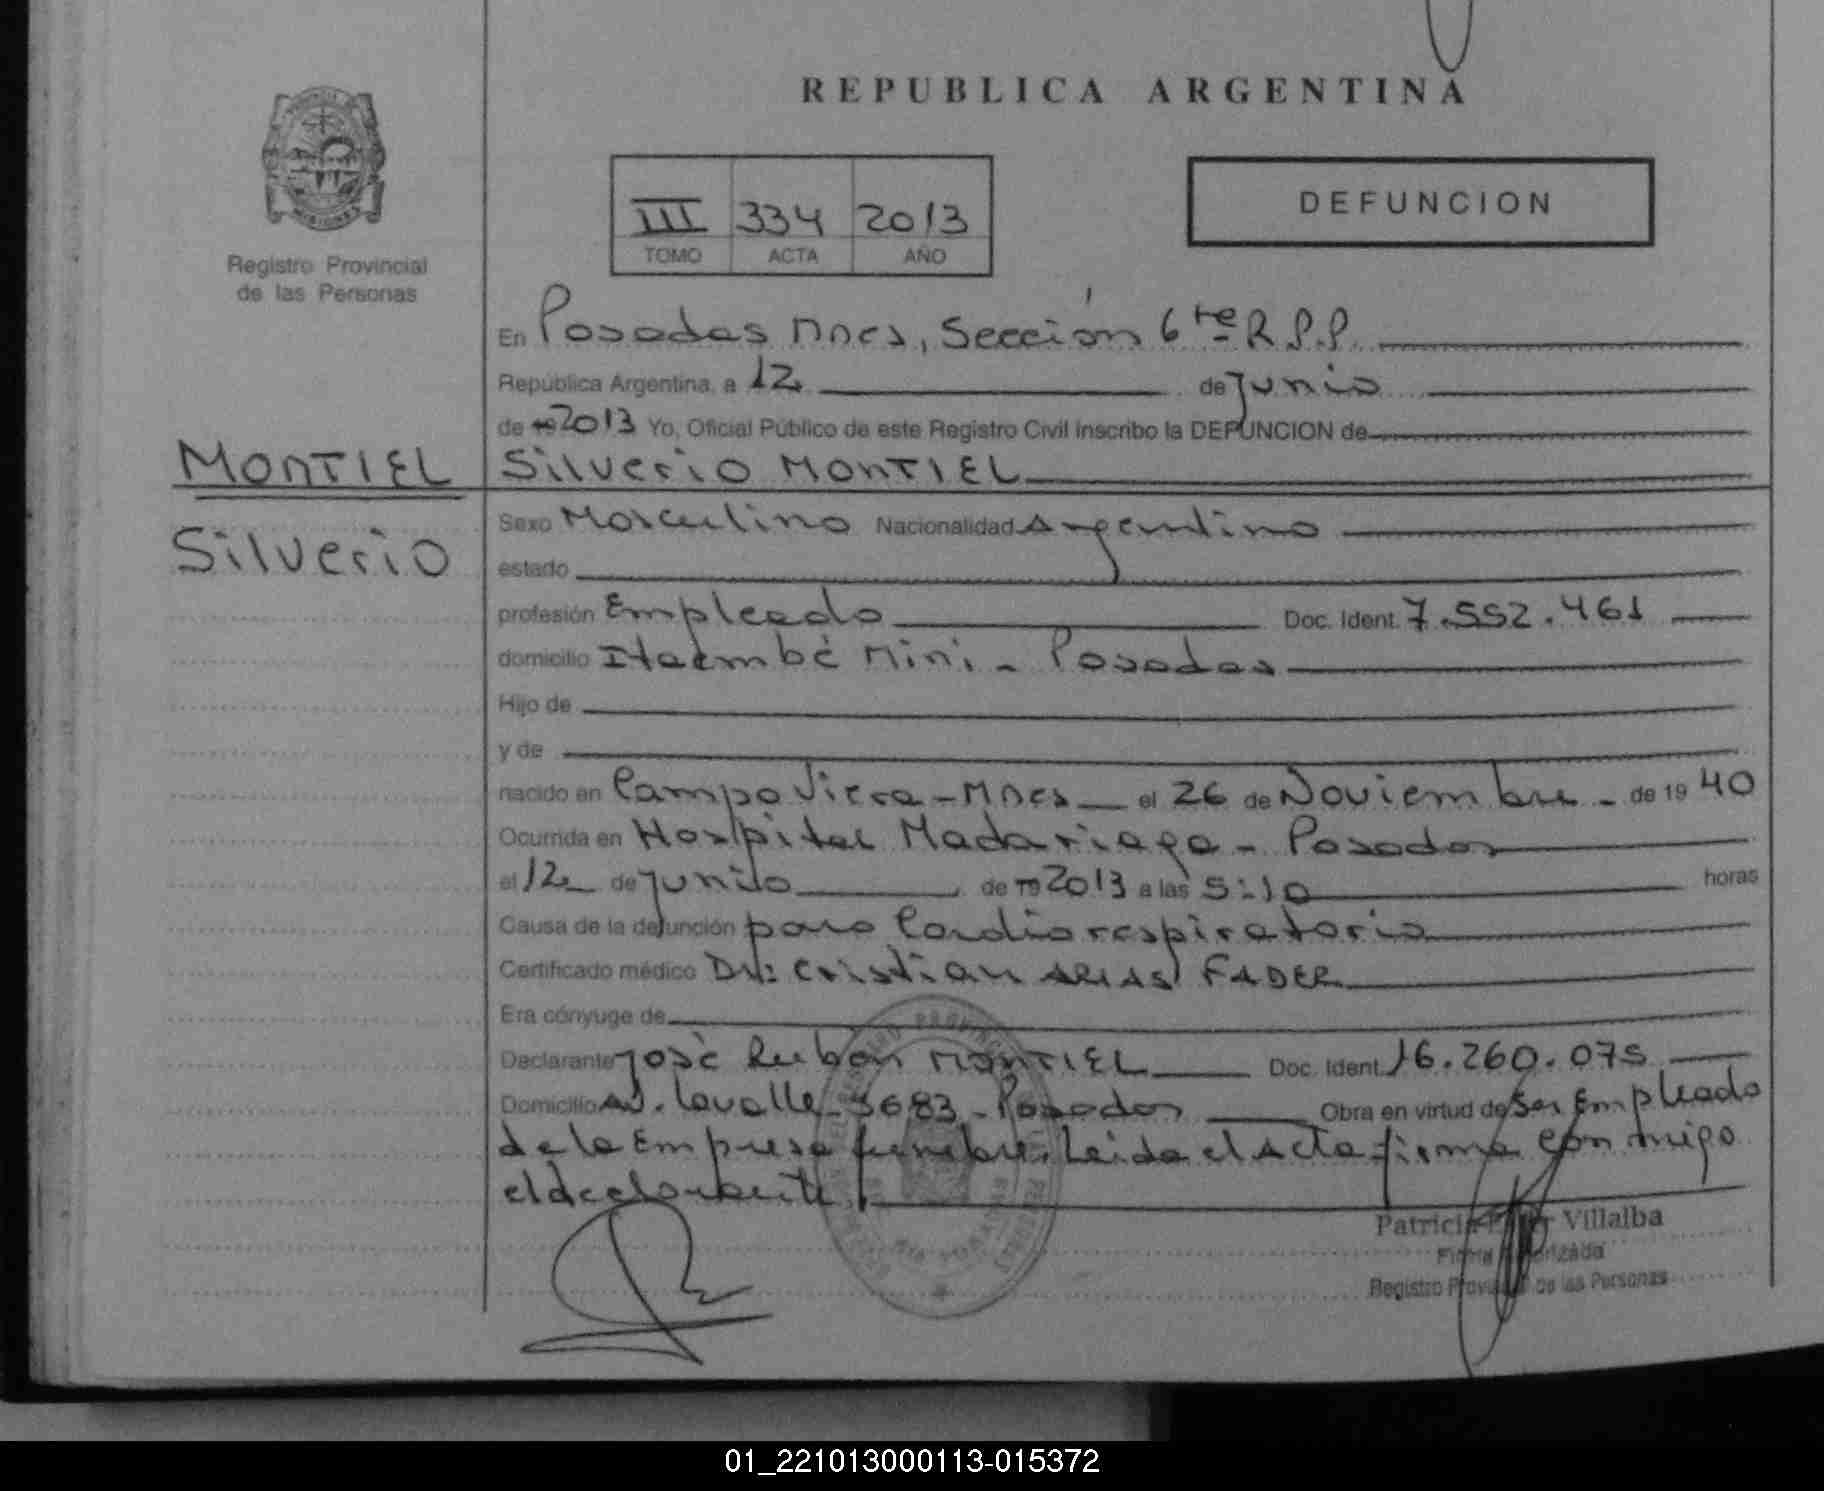 REPUBLICA ARGENTINA
MISIONES
Registro Provincial
de las Personas
III 334 2013
TOMO ACTA AÑO
DEFUNCION
En Posadas Mnes, Sección 6ta R.P.P.
República Argentina, a 12 de Junio
de 19 2013 Yo, Oficial Público de este Registro Civil inscribo la DEFUNCION de
MONTIEL
Silverio
Silverio MONTIEL
Sexo Masculino Nacionalidad Argentino
estado
profesión Empleado Doc. Ident. 7.552.461
domicilio Itaembé Mini - Posadas
Hijo de
y de
nacido en Campo Viera - Mnes el 26 de Noviembre - de 19 40
Ocurrida en Hospital Madariaga - Posadas
el 12 de Junio de 19 2013 a las 5:10 horas
Causa de la defunción paro Cardiorespiratorio
Certificado médico Dr: Cristian ARIAS FADER
Era cónyuge de
Declarante José Ruben MONTIEL Doc. Ident. 16.260.075
Domicilio Av. Lavalle - 3683 - Posadas Obra en virtud de Ser Empleado
de la Empresa funebre. Leida el Acta firma con migo
el declarante.
Patricia Villalba
Firma Autorizada
Registro Provincial de las Personas
01_221013000113-015372